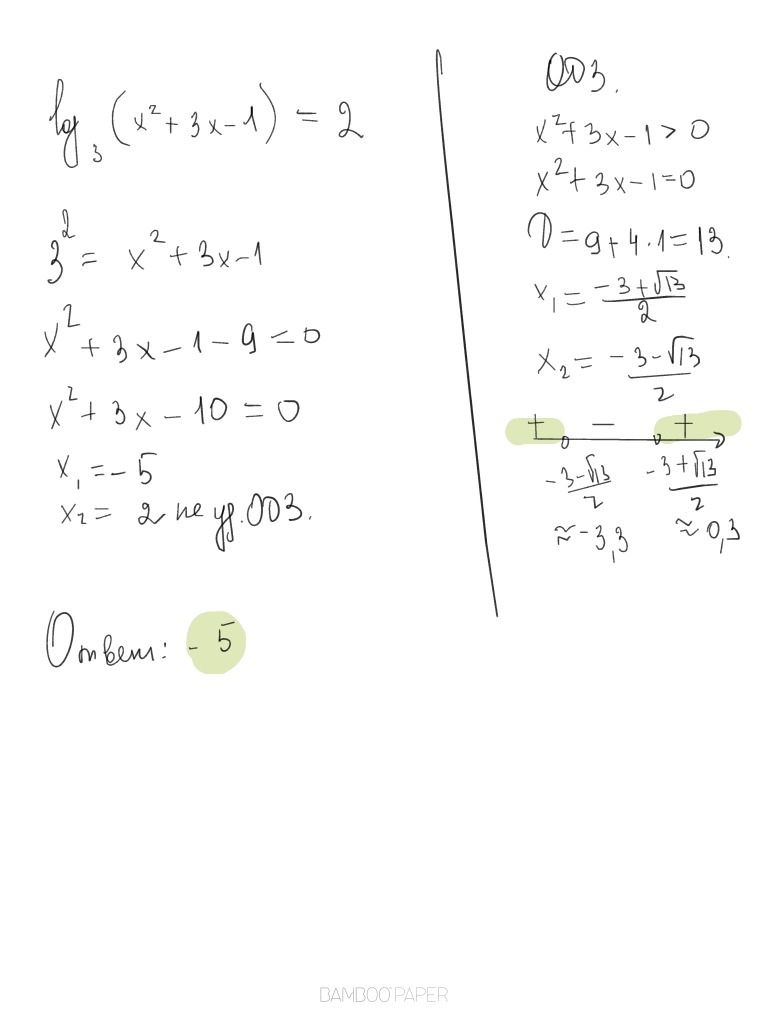 log₃ (x² + 3x - 1) = 2
3² = x² + 3x - 1
x² + 3x - 1 - 9 = 0
x² + 3x - 10 = 0
x₁ = - 5
x₂ = 2 не уд. ООЗ.
Ответ: - 5
ООЗ.
x² + 3x - 1 > 0
x² + 3x - 1 = 0
D = 9 + 4 · 1 = 13.
x₁ = (-3 + √13)/2
x₂ = (-3 - √13)/2
+ − +
(-3 - √13)/2 (-3 + √13)/2
≈ -3,3 ≈ 0,3
BAMBOO PAPER